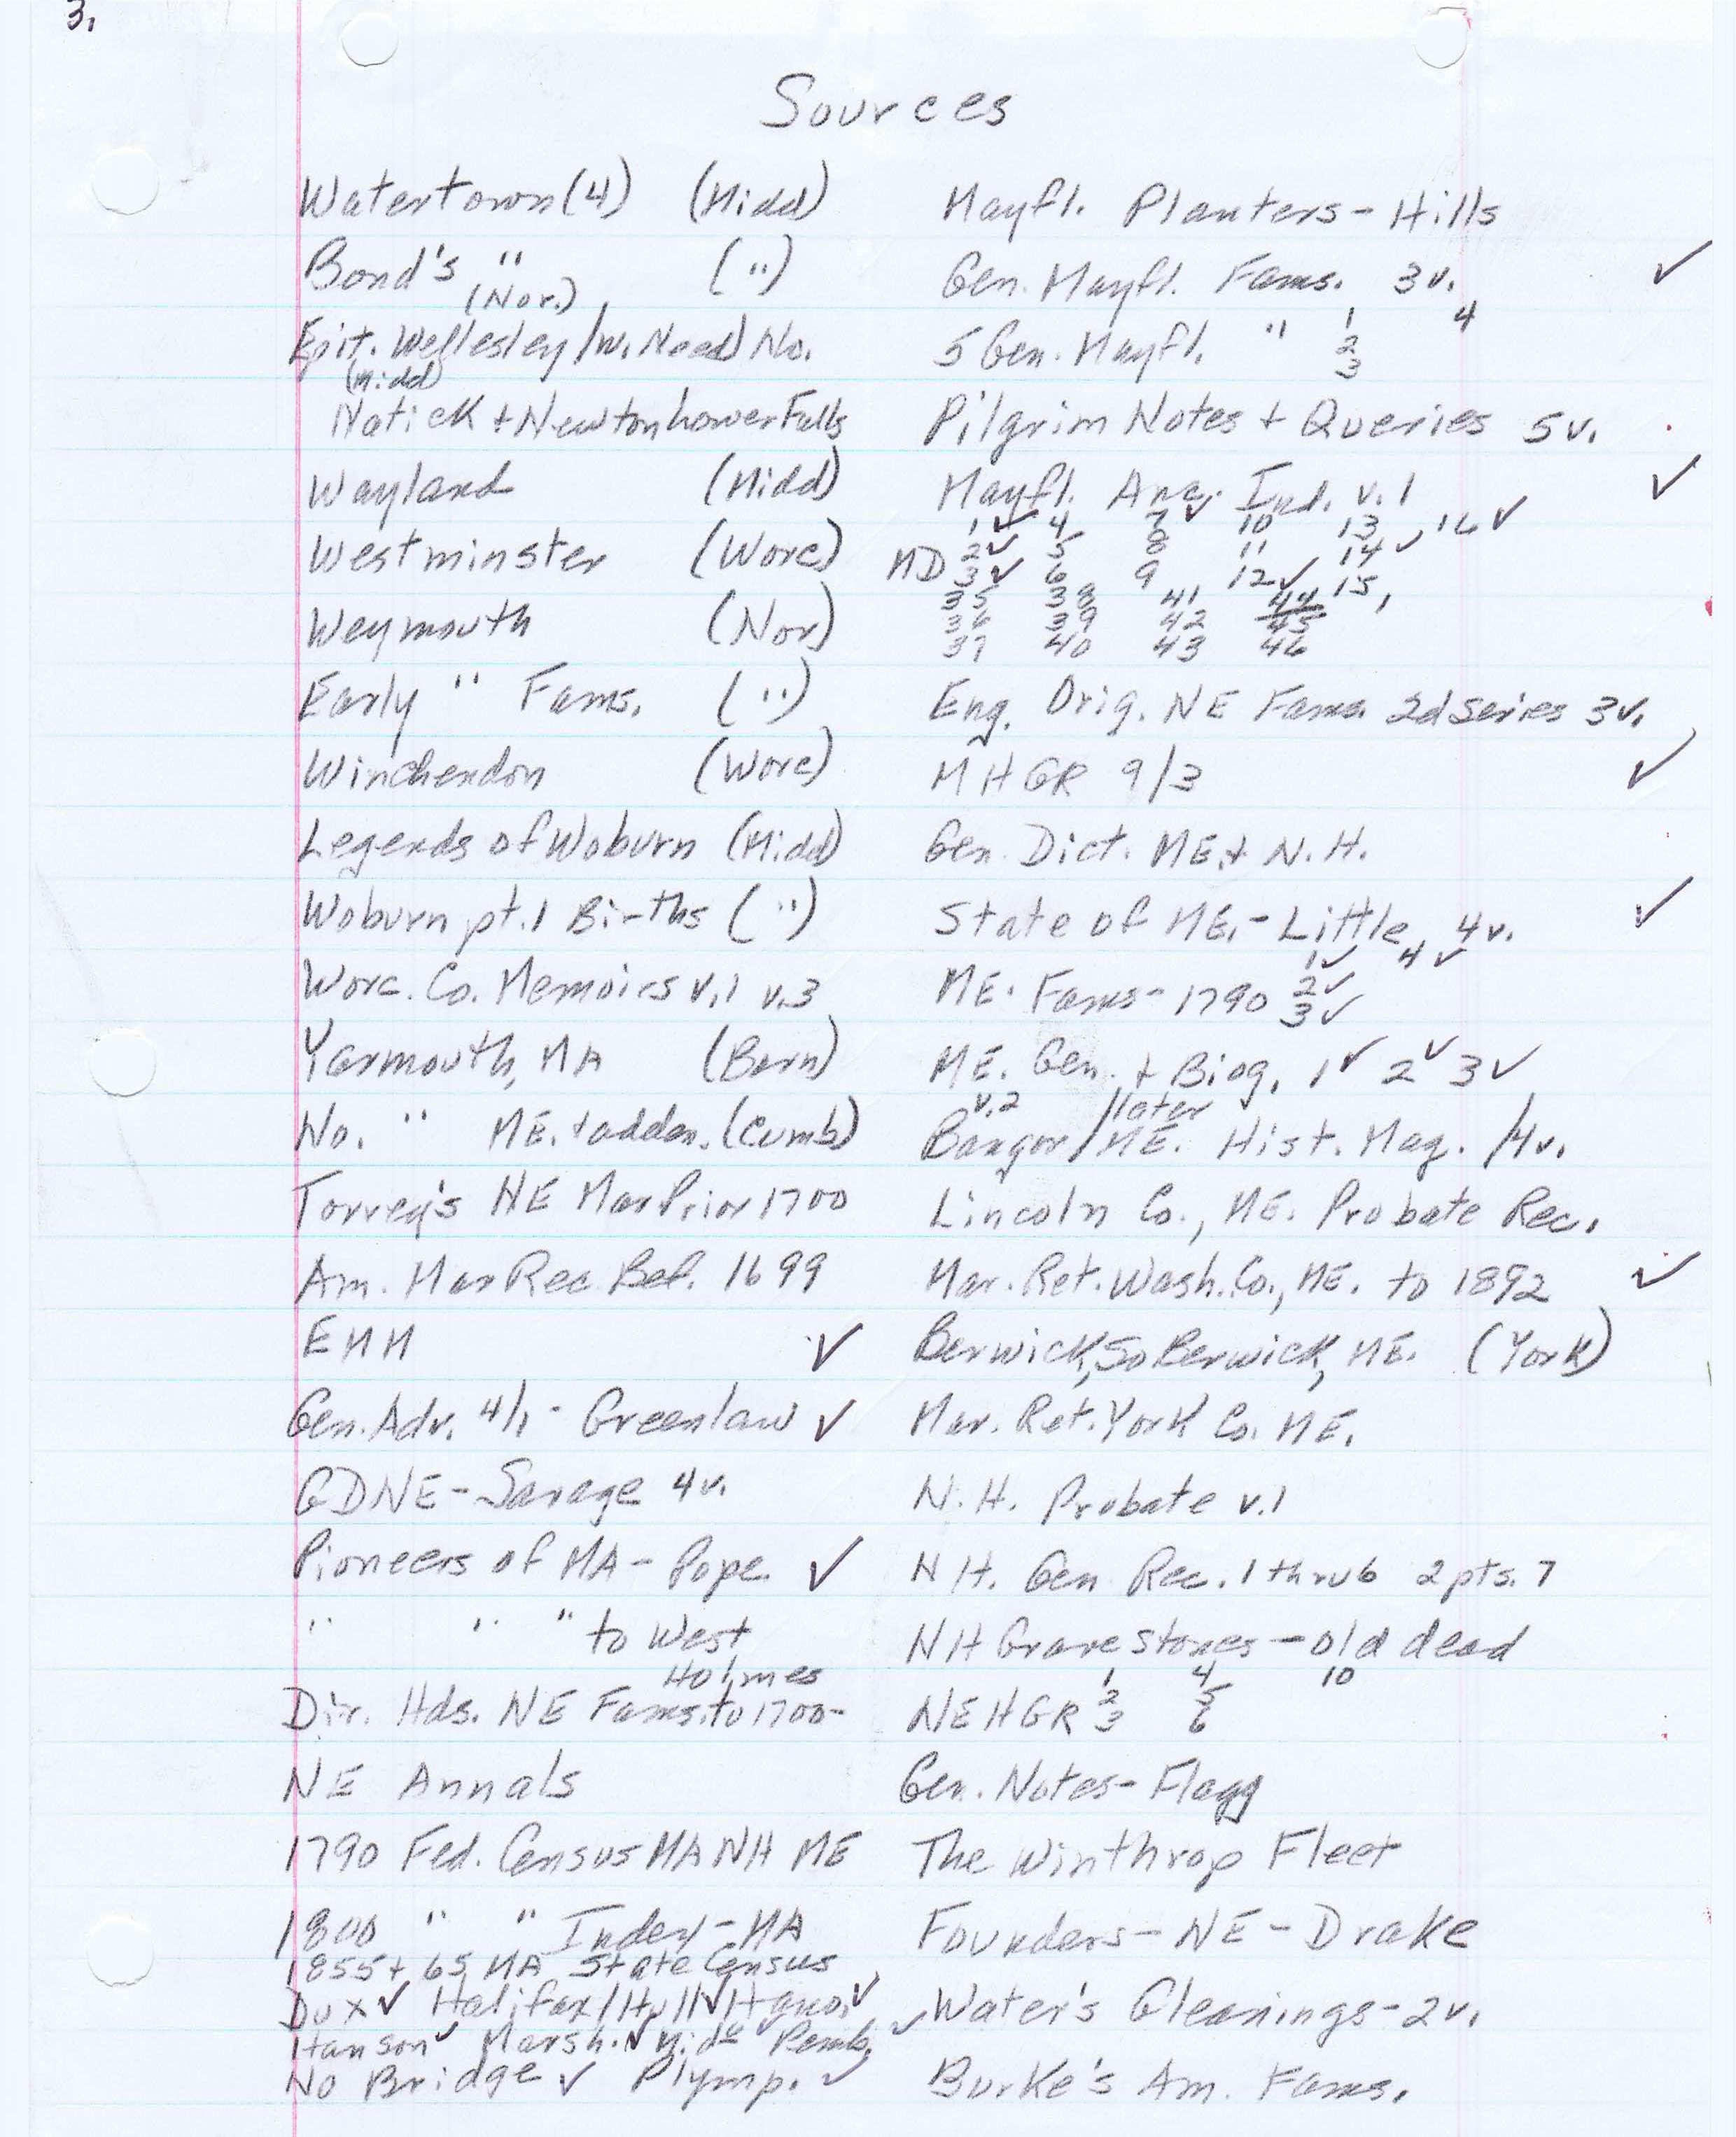 3.
Sources
Watertown (4) (Midd)
Bond's " (")
(Nor.)
Epit. Wellesley/W. Need) No.
(Midd)
Natick + Newton Lower Falls
Wayland (Midd)
Westminster (Worc)
Weymouth (Nor)
Early " Fams. (")
Winchendon (Worc)
Legends of Woburn (Midd)
Woburn pt. 1 Births (")
Worc. Co. Memoirs v.1 v.3
Yarmouth, MA (Barn)
No. " ME. + adden. (Cumb)
Torrey's NE Mar Prior 1700
Am. Mar Rec. Bef. 1699
EMM ✓
Gen. Adv. 4/1 - Greenlaw ✓
GDNE - Savage 4v.
Pioneers of MA - Pope ✓
" " " to West
Holmes
Dir. Hds. NE Fams. to 1700-
NE Annals
1790 Fed. Census MA NH ME
1800 " " Index - MA
1855 + 65 MA State Census
Dux ✓ Halifax/Hull ✓ Hano. ✓
Hanson ✓ Marsh. ✓ Mid. ✓ Pemb. ✓
No Bridge ✓ Plymp. ✓
Mayfl. Planters - Hills
Gen. Mayfl. Fams. 3v. ✓
5 Gen. Mayfl. " 1 2 3 4
Pilgrim Notes + Queries 5v.
Mayfl. Anc. Ind. v. 1 ✓
1 ✓ 4 7 ✓ 10 13 16 ✓
MD 2 ✓ 5 8 11 14 ✓
3 ✓ 6 9 12 ✓ 15
35 38 41 44
36 39 42 45
37 40 43 46
Eng. Orig. NE Fams. 2d Series 3v.
MHGR 9/3 ✓
Gen. Dict. ME. + N.H.
State of ME. - Little 4v. ✓
1 ✓ 4 ✓
ME. Fams - 1790 2 ✓
3 ✓
ME. Gen. + Biog. 1 ✓ 2 ✓ 3 ✓
v.2 /later
Bangor/ME. Hist. Mag. /4v.
Lincoln Co., ME. Probate Rec.
Mar. Ret. Wash. Co., ME. to 1892 ✓
Berwick, So Berwick, ME. (York)
Mar. Ret. York Co. ME.
N.H. Probate v.1
NH. Gen Rec. 1 thru 6 2 pts. 7
NH Gravestones - old dead
1 4 10
NEHGR 2 5
3 6
Gen. Notes - Flagg
The Winthrop Fleet
Founders - NE - Drake
Water's Gleanings - 2v.
Burke's Am. Fams.